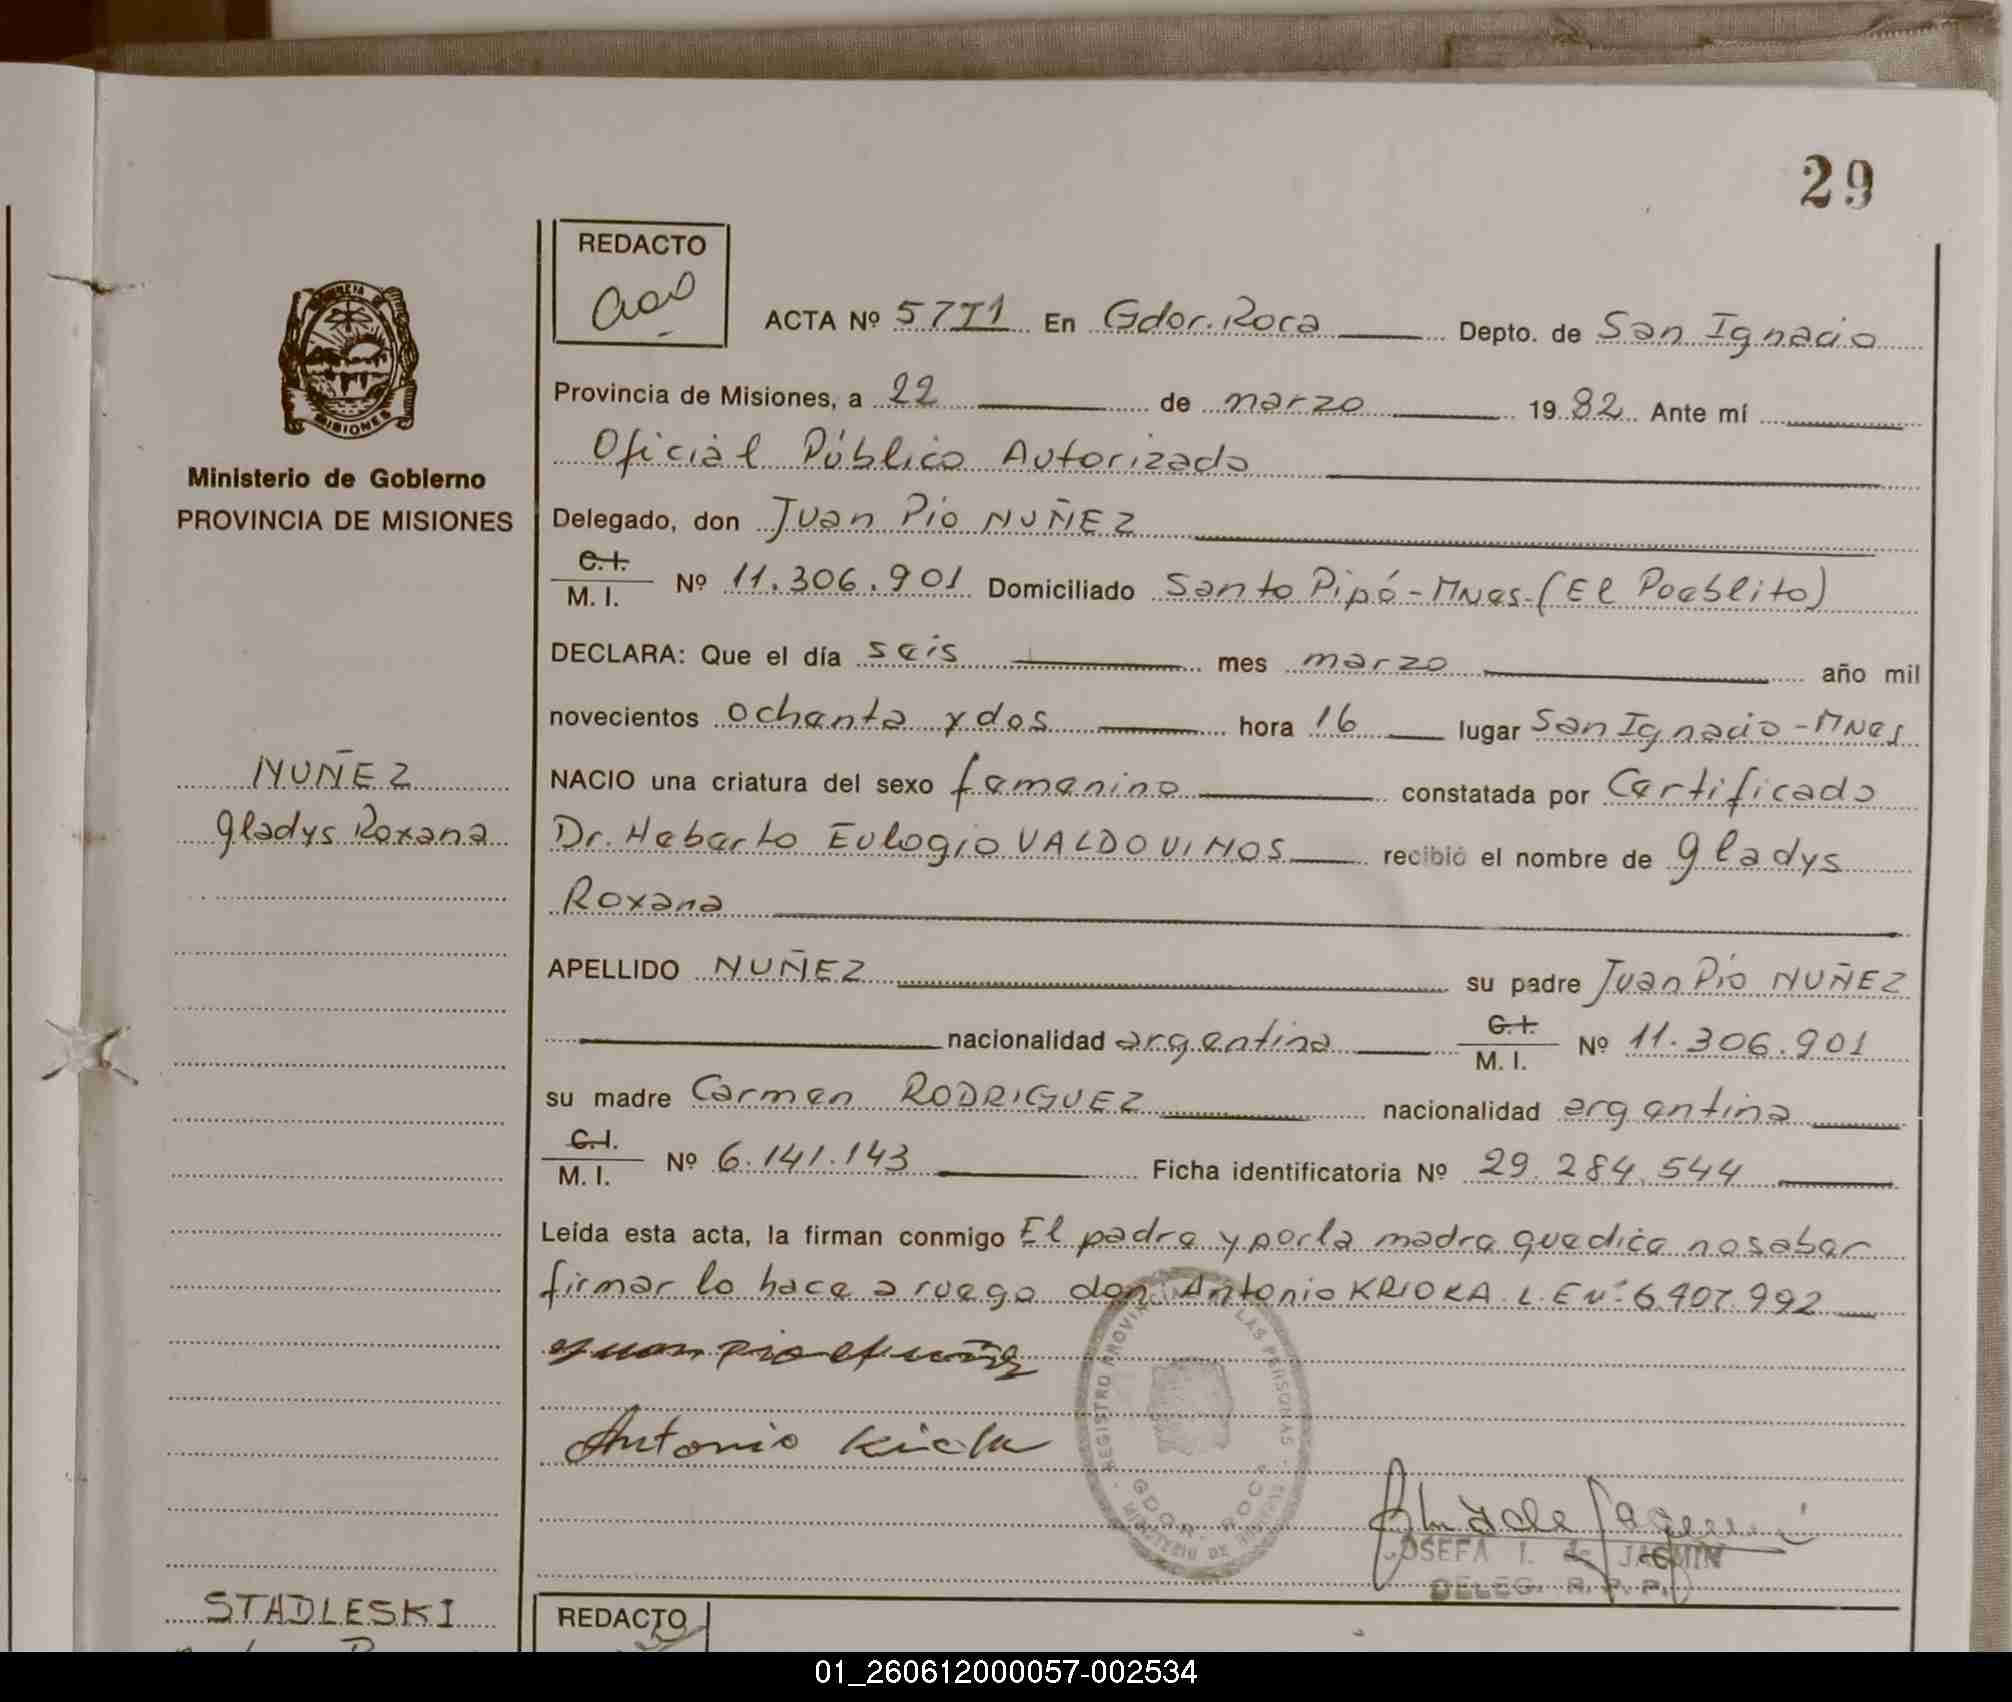 29
REDACTO
ACTA Nº 57T1 En Gdor. Roca Depto. de San Ignacio
Provincia de Misiones, a 22 de marzo 1982 Ante mí
Oficial Público Autorizado
Ministerio de Gobierno
PROVINCIA DE MISIONES
Delegado, don Juan Pio NUÑEZ
C.I. M. I. Nº 11.306.901 Domiciliado Santo Pipó - Mnes. (El Pueblito)
DECLARA: Que el día seis mes marzo año mil
novecientos ochenta y dos hora 16 lugar San Ignacio - Mnes
NUÑEZ
Gladys Roxana
NACIO una criatura del sexo femenino constatada por Certificado
Dr. Heberto Eulogio VALDOVINOS recibió el nombre de Gladys
Roxana
APELLIDO NUÑEZ su padre Juan Pio NUÑEZ
nacionalidad argentina C.I. M. I. Nº 11.306.901
su madre Carmen RODRIGUEZ nacionalidad argentina
C.I. M. I. Nº 6.141.143 Ficha identificatoria Nº 29.284.544
Leída esta acta, la firman conmigo El padre y por la madre que dice no saber
firmar lo hace a ruego don Antonio KRIOKA L E nº 6.907.992
Antonio
REGISTRO PROVINCIAL LAS PERSONAS
GDOR. ROCA
MINISTERIO DE
JOSEFA I. JASMIN
DELEG. R. P. P.
STADLESKI
REDACTO
01_260612000057-002534